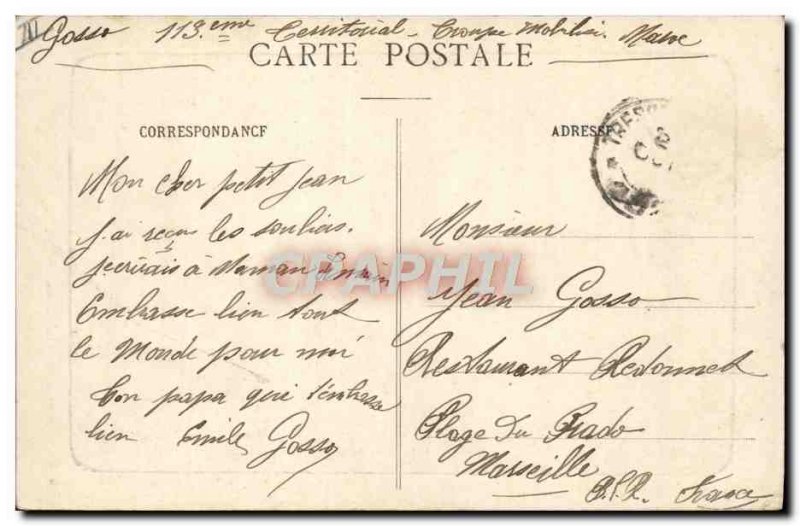 Gosso 113.eme Territorial - Groupe Mobilisé. Maroc
CARTE POSTALE
CORRESPONDANCE
ADRESSE
Mon cher petit Jean
J'ai reçus les souliers.
J'ecrirais à Maman
Embrasse bien tout
le Monde pour moi
Ton papa qui t'embrasse
bien Emile Gosso
Monsieur
Jean Gosso
Restaurant Redonnet
Plage Du Prado
Marseille
B.d.R. France
CPAPHIL